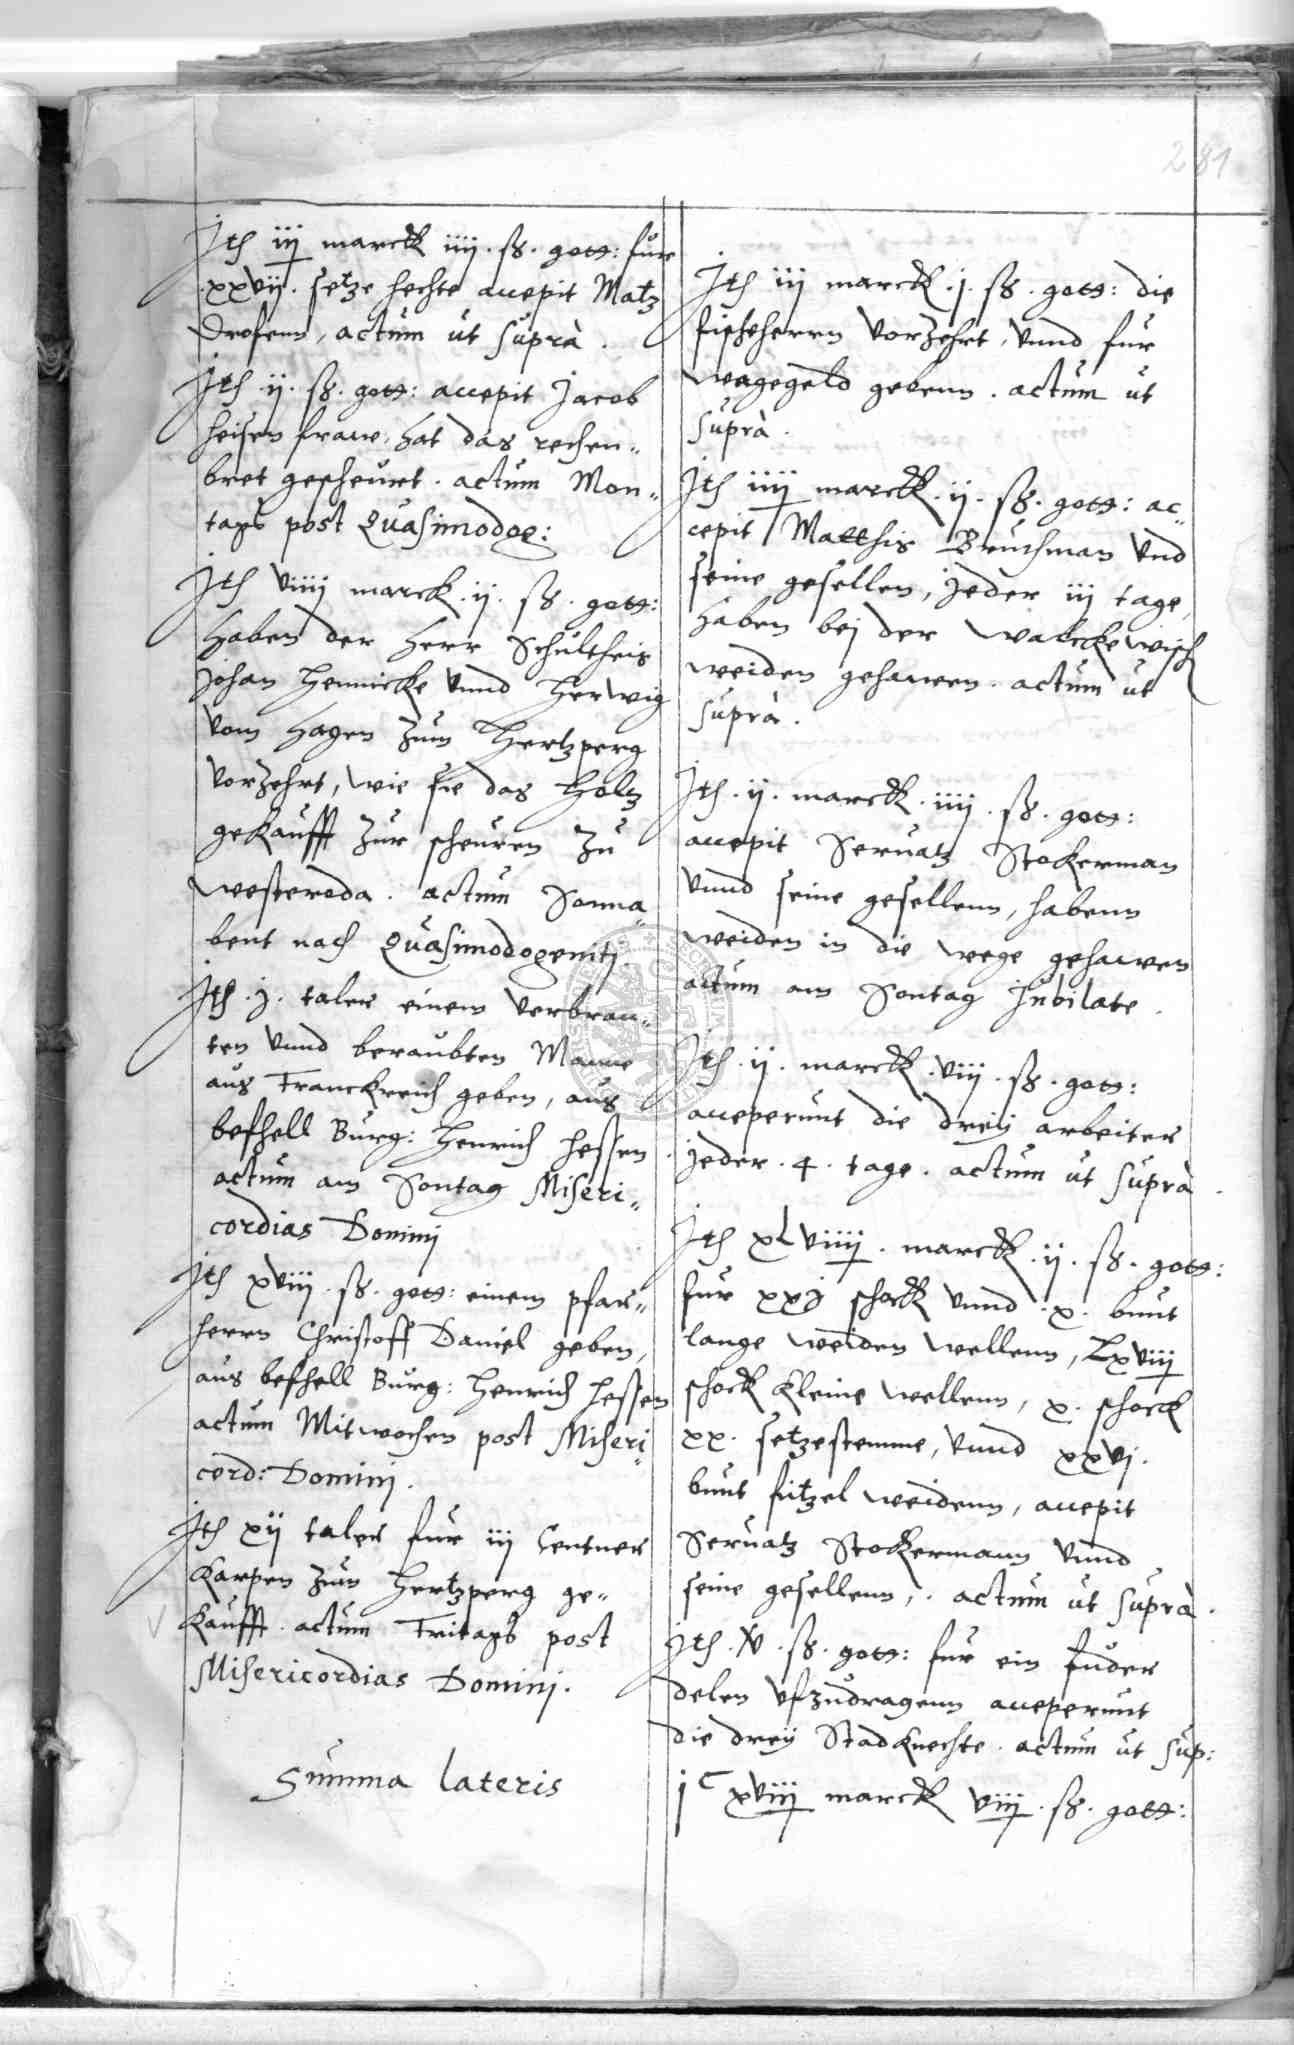 281
Ith iij marck iiij. ß. gott: fur
xxvij. setze hechte accepit Matz
Drosenn, actum ut suprà.
Ith ij. ß. gott: accepit Jacob
heisen frawe, hat das rechen„
bret gescheurt. actum Mon„
tags post Quasimodog:
Ith viiij marck. ij. ß. gott:
haben der herr Schultheis
Johan Hennicke vnnd Herwig
vom Hagen zum Hertzperg
vorzehrt, wie sie das Holtz
gekaufft zur scheuren zu
westeroda. actum Sonna„
bent nach Quasimodogenitj
Ith. j. taler einem verbran„
ten vnnd beraubten Manne
aus Franckreich geben, aus
befhell Burg: Henrich Hessen.
actum am Sontag Miseri„
cordias Dominj
Ith xviij. ß. gott: einem pfar„
herrn Christoff Daniel geben,
aus befhell Burg: Henrich Hessen
actum Mitwochen post Miseri„
cord: Dominj.
Ith xij taler fur iij Centner
Karpen zum Hertzperg ge„
kaufft. actum Fritags post
Misericordias Dominj.
Summa lateris
Ith iij marck. j. ß. gott: die
fischherrn vorzehrt, vnnd fur
wagegeld gebenn. actum ut
suprà.
Ith iiij marck. ij. ß. gott: ac„
cepit Matthis Bruchman vnd
seine gesellen, jeder iij tage,
haben bej der walckewisch
weiden gehawen. actum ut
suprà.
Ith. ij. marck. iiij. ß. gott:
accepit Seruatz Stokerman
vnnd seine gesellenn, habenn
weiden in die wege gehawen
actum am Sontag Jubilate.
Ith. ij. marck. viij. ß. gott:
acceperunt die dreij arbeiter
jeder. 4. tage. actum ut suprà.
Ith xLviiij. marck. ij. ß. gott:
fur xxj schock vnnd. x. bunt
lange weiden wellenn, Lxviij
schock kleine wellenn, x. schock
xx. setzestemme, vnnd xxvj.
bunt fitzel weidenn, accepit
Seruatz Stockermann vnnd
seine gesellenn,. actum ut suprà.
Ith. xv. ß. gott: fur ein fuder
delen vfzudragenn acceperunt
die dreij Stadknechte. actum ut sup:
jC xviij marck viij. ß. gott: